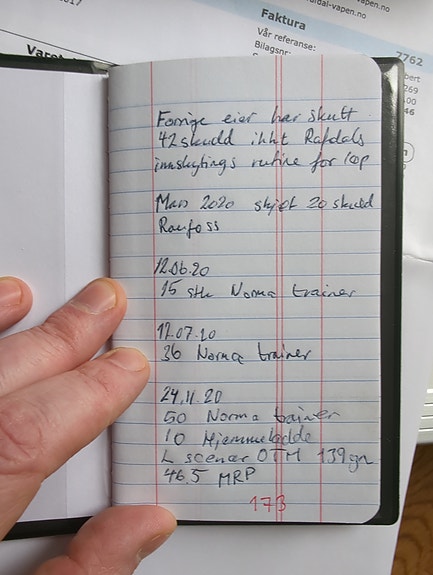 dal-vapen.no
Faktura
Vår referanse:
Bilagsnr:
7762
bert
269
:00
46
2017
Forrige eier har skutt
42 skudd ihht Rafdals
innskytings rutine for løp
Mars 2020 skjøt 20 skudd
Raufoss
12.06.20
15 stk Norma trainer
12.07.20
36 Norma trainer
24.11.20
50 Norma trainer
10 Hjemmeladde
L scenar OTM 139 grn
46.5 MRP
173